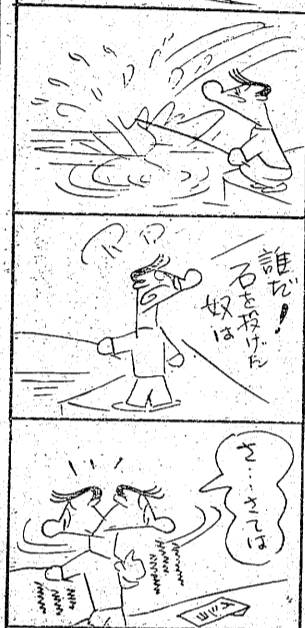 誰だ!
石を投げた
奴は
さ…さては